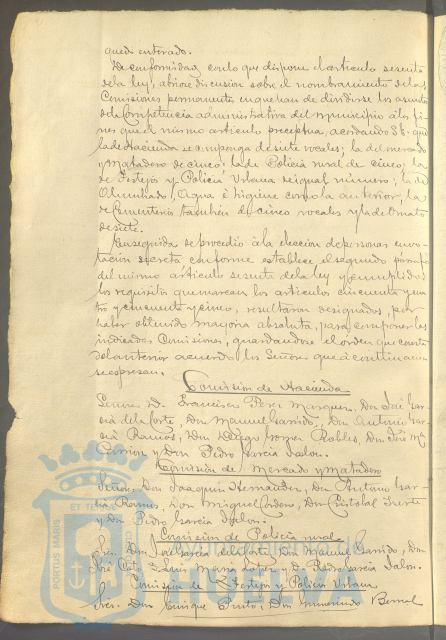 quedó enterado.
De conformidad con lo que dispone el artículo sesenta
de la ley, abriose discusión sobre el nombramiento de las
Comisiones permanentes en que han de dividirse los asuntos
de la competencia administrativa del municipio á los fi-
nes que el mismo artículo preceptua, acordando S.S. que
la de Hacienda se componga de siete vocales; la de mercado
y Matadero de cinco; la de Policia rural de cinco; la
de Festejos y Policia Urbana de igual numero; la de
Alumbrado, Agua é higiene como la anterior; la
de Cementerio tambien de cinco vocales y la de
de siete.
Enseguida se procedió á la elección de personas en vo-
tación secreta conforme establece el segundo parrafo
del mismo artículo sesenta de la ley y cumplidos
los requisitos que marcan los articulos cincuenta y cua-
tro y cincuenta y cinco, resultaron designados, por
haber obtenido mayoria absoluta, para componer las
indicadas Comisiones, guardandose el orden que consta
del anterior acuerdo los Señores que á continuación
se expresan.
Comisión de Hacienda
Señores D. Francisco Perez Marquez, Don José Gar-
cia de la Corte, Don Manuel Garrido, Don Antonio Gar-
cia Ramos, Don Diego Gomez Robles, Don José Mª
y Don Pedro Garcia Jalon.
Comisión de Mercado y Matadero
Señores, Don Joaquin Hernandez, Don Antonio Gar-
cia Ramos, Don Miguel Cordero, Don Cristobal
y Don Pedro Garcia Jalon.
Comisión de Policia rural
Sres. Don José Garcia de la Corte, Don Manuel Garrido, Don
José D. Luis Maria Lopez y D. Pedro Garcia Jalon.
Comisión de Festejos y Policia Urbana
Sres. Don Enrique Don Bernal
PORTUS MARIS ET TERRAE
HUELVA